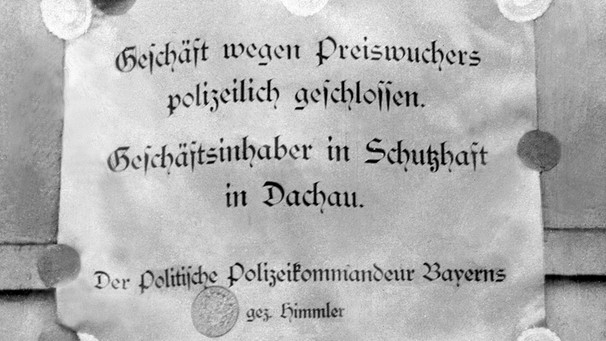 Geschäft wegen Preiswuchers
polizeilich geschlossen.
Geschäftsinhaber in Schutzhaft
in Dachau.
Der Politische Polizeikommandeur Bayerns
gez. Himmler